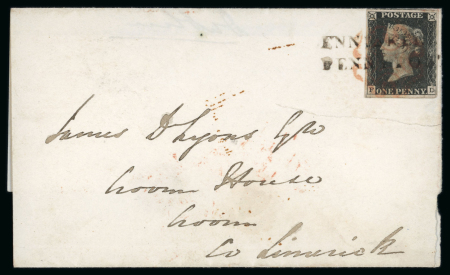 POSTAGE
PENNY POST
ONE PENNY
James D Lyons Esq
Croom House
Croom
Co Limerick